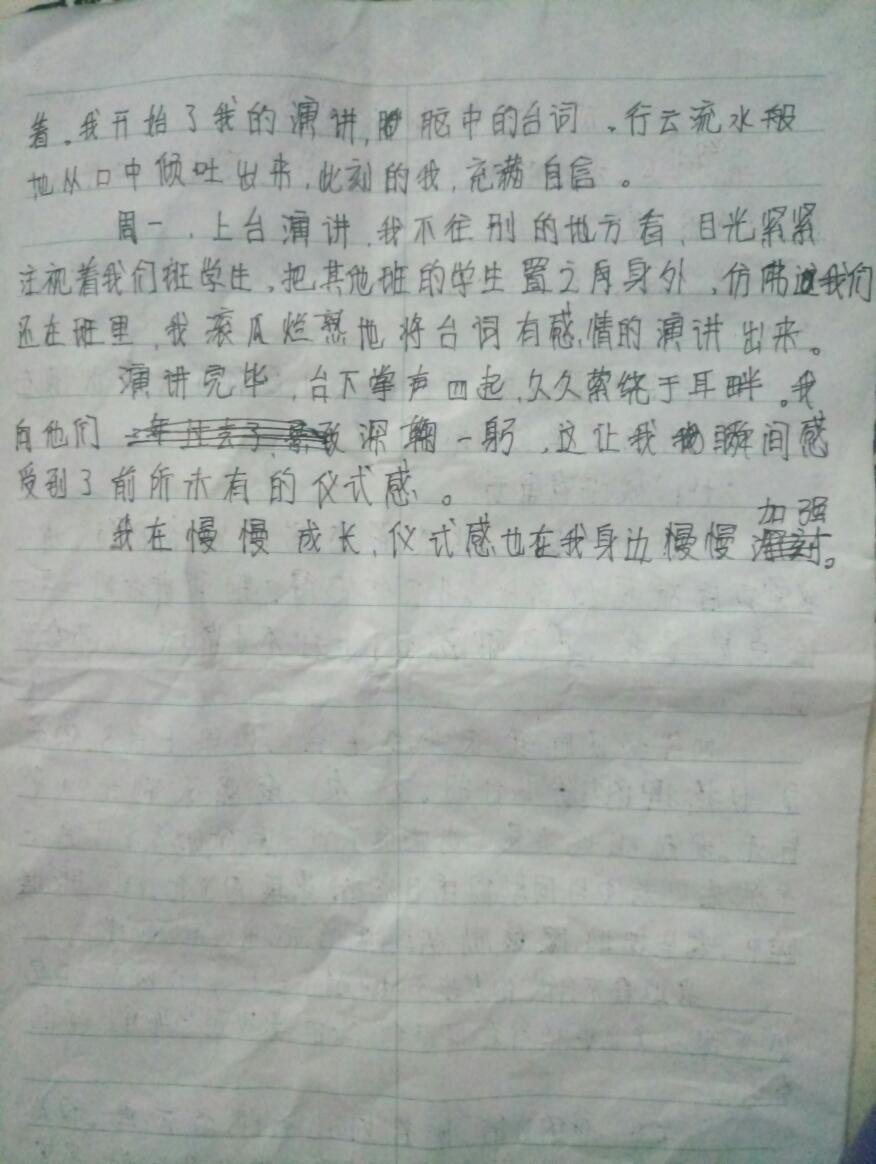 着。我开始了我的演讲,脑中的台词。行云流水般
地从口中倾吐出来,此刻的我,充满自信。
周一,上台演讲,我不往别的地方看,目光紧紧
注视着我们班学生,把其他班的学生置之身外,仿佛我们
还在班里,我滚瓜烂熟地将台词有感情的演讲出来。
演讲完毕,台下掌声四起,久久萦绕于耳畔。我
向他们深鞠一躬,这让我瞬间感
受到了前所未有的仪式感。
我在慢慢成长,仪式感也在我身边慢慢加强。